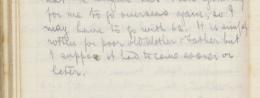 for me to go overseas again, so I
may have to go with 62. It is
rotten for poor old Mother & Father but
I suppose it had to come sooner or
later.